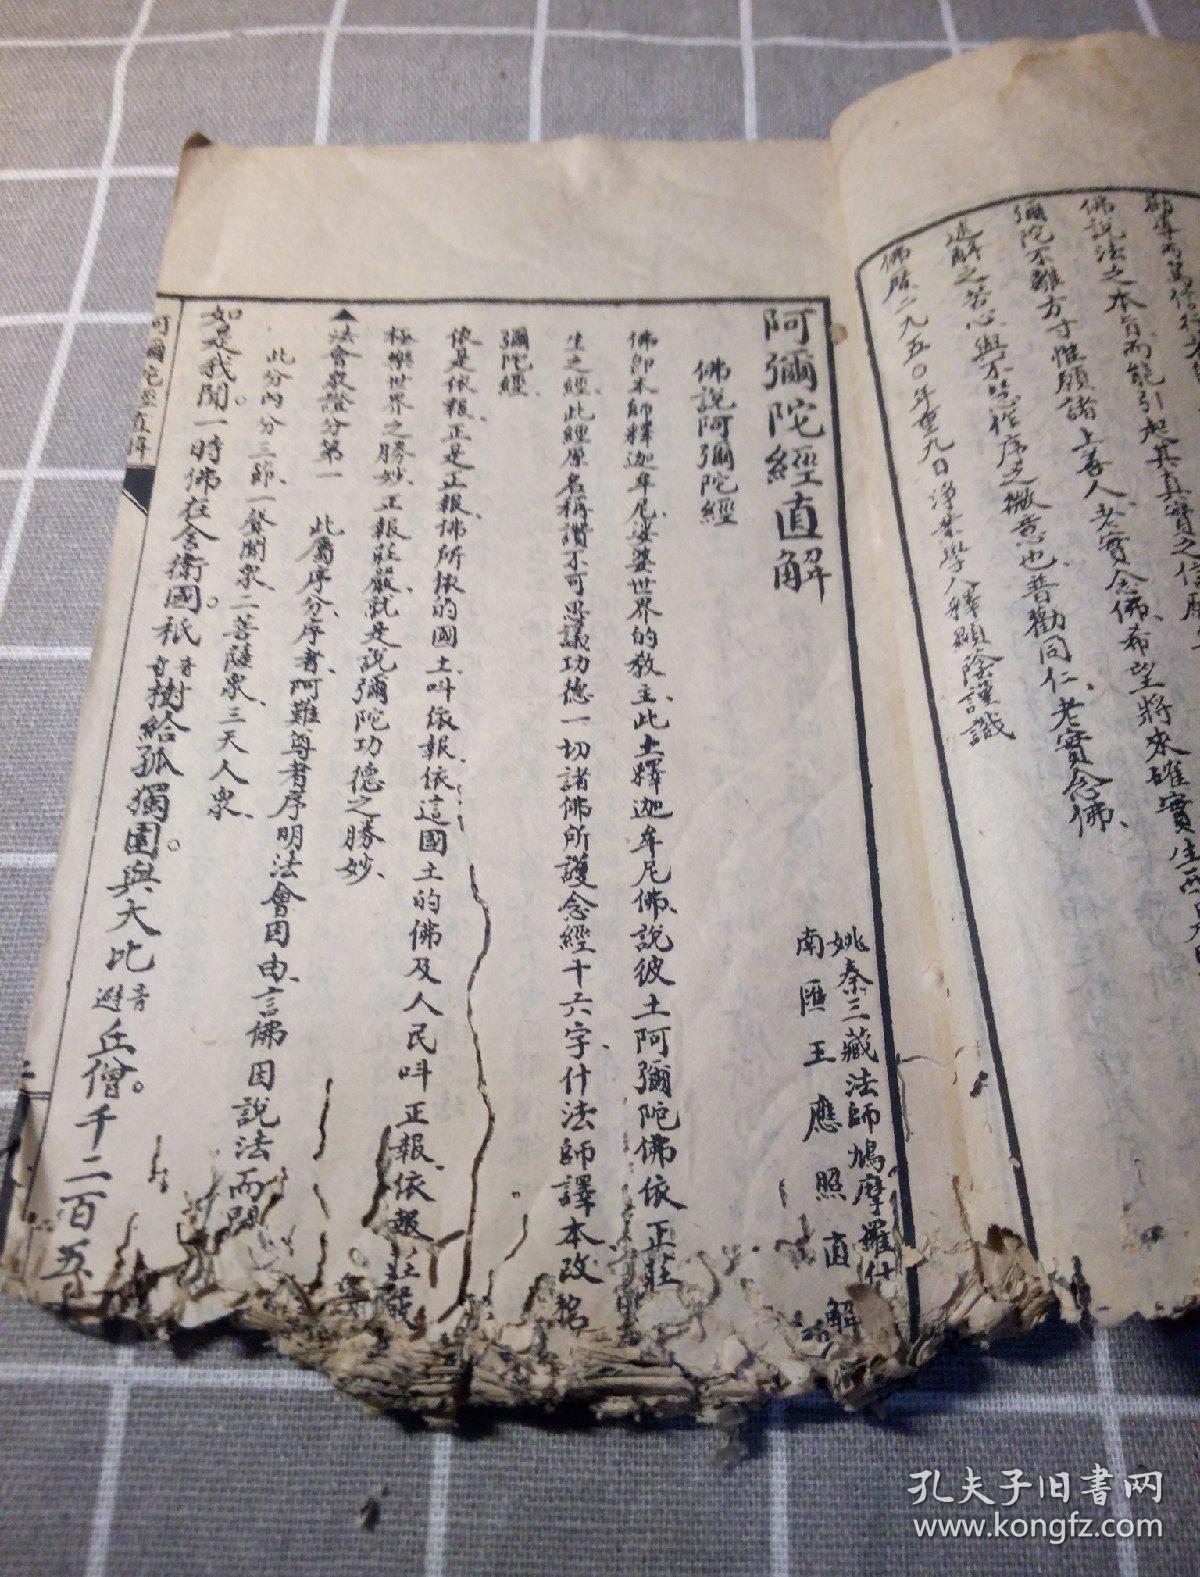 佛說法之本旨而能引起其真實之信願
彌陀不離方寸惟願諸上善人老實念佛希望將來確實生
述解之苦心與不慧作序之微意也普勸同仁老實念佛
佛歷二九五〇年重九日淨業學人釋顯蔭謹識
阿彌陀經直解
姚秦三藏法師鳩摩羅什
南匯王應照直解
佛說阿彌陀經
佛卽本師釋迦牟尼娑婆世界的敎主此土釋迦牟尼佛說彼土阿彌陀佛依正莊
生之經此經原名稱讚不可思議功德一切諸佛所護念經十六字什法師譯本改名
彌陀經
依是依報正是正報佛所依的國土叫依報依這國土的佛及人民叫正報依報莊嚴
極樂世界之勝妙正報莊嚴就是說彌陀功德之勝妙
▲法會衆證分第一 此屬序分序者阿難尊者序明法會因由言佛因說法而
此分內分三節一聲聞衆二菩薩衆三天人衆
如是我聞。一時佛在舍衛國。祇音奇樹給孤獨園。與大比音避丘僧。千二百五
阿彌陀經直解
孔夫子旧书网
www.kongfz.com